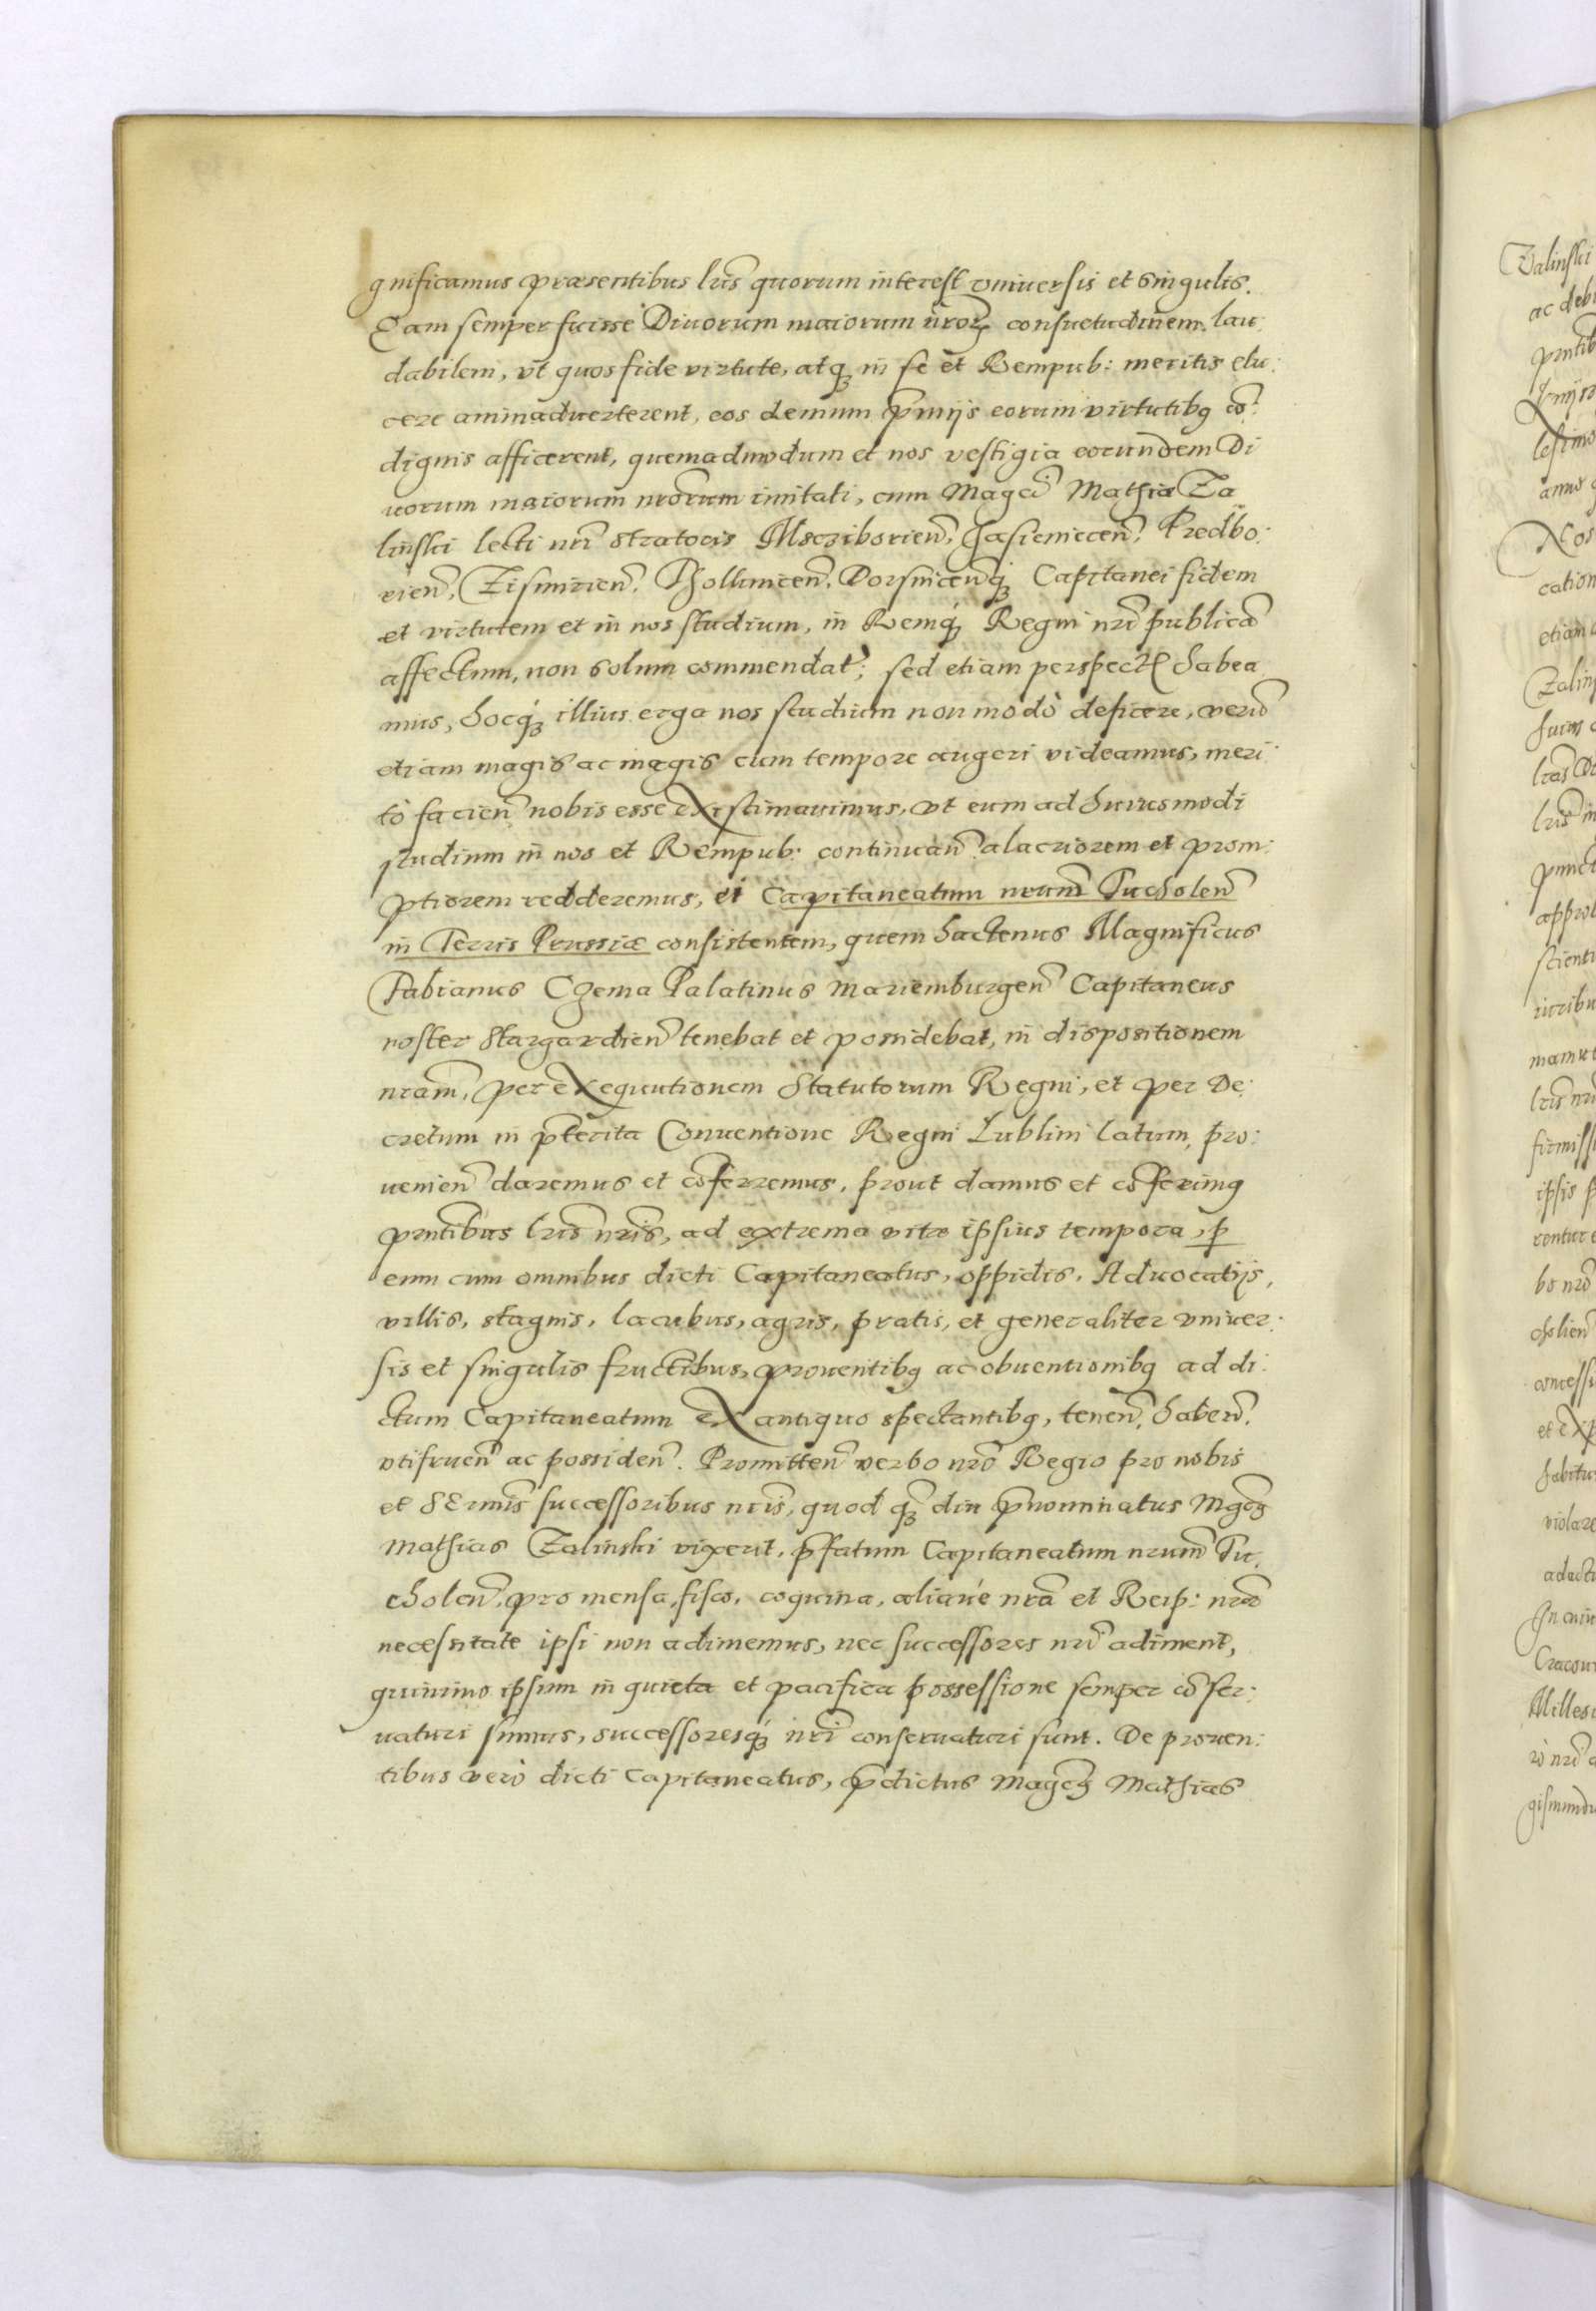 gnificamus præsentibus lr̃is quorum interest vniuersis et singulis.
Eam semper fuisse Diuorum maiorum nr̃oꝝ consuetudinem lau:
dabilem, vt quos fide virtute, atqꝫ in se et Rempub: meritis elu:
cere aminaduerterent, eos demum p̃mijs eorum virtutibꝯ cõ:
dignis afficerent, quemadmodum et nos vestigia eorundem Di
uorum maiorum nr̃orum imitati, cum Mag̃ci Mathiæ Za
linski lecti nr̃i stratoris Mscziborien̄, Jasienicen̄, Predbo:
rien̄, Zismirien̄, Thollmicen̄, Dorsnicen̄qꝫ Capitanei fidem
et virtutem et in nos studium, in Remqꝫ Regni nr̃i publicã
affectum, non solum commendat̃; sed etiam perspectũ habea
mus, hocqꝫ illius erga nos studium non modò deficere, verũ
etiam magis ac magis cum tempore augeri videamus, meri:
tò facien̄ nobis esse existimauimus, vt eum ad huiusmodi
studium in nos et Rempub: continuan̄ alacriorem et prom:
ptiorem redderemus, ei Capitaneatum nr̃um Tucholen̄
in Terris Prussiæ consistentem, quem hactenus Magnificus
Fabianus Czema Palatinus Mariemburgen̄ Capitaneus
noster Stargardien̄ tenebat et possidebat, in dispositionem
nr̃am, per exequutionem Statutorum Regni, et per De:
cretum in p̃terita Conuentione Regni Lublini latum, pro:
uenien̄ daremus et cõferremus, prout damus et cõferimꝯ
pn̄tibus lr̃is nr̃is, ad extrema vitæ ipsius tempora, ꝑ
eum cum omnibus dicti Capitaneatus, oppidis, Aduocatijs,
villis, stagnis, lacubus, agris, pratis, et generaliter vniuer:
sis et singulis fructibus, prouentibꝯ ac obuentionibꝯ ad di:
ctum Capitaneatum ex antiquo spectantibꝯ, tenen̄, haben̄,
vtifruen̄ ac possiden̄. Promitten̄ verbo nr̃o Regio pro nobis
et SErmis successoribus nr̃is, quod qꝫ diu p̃nominatus Mg̃cꝯ
Mathias Zalinski vixerit, p̃fatum Capitaneatum nr̃um Tu:
cholen̄, pro mensa, fisco, coquina, aliaùe nr̃a et Reip: nr̃æ
necessitate ipsi non adimemus, nec successores nr̃i adiment,
quinimo ipsum in quieta et pacifica possessione semper cõser:
uaturi sumus, successoresqꝫ nr̃i conseruaturi sunt. De prouen:
tibus verò dicti Capitaneatus, p̃dictus Mag̃cꝯ Mathias